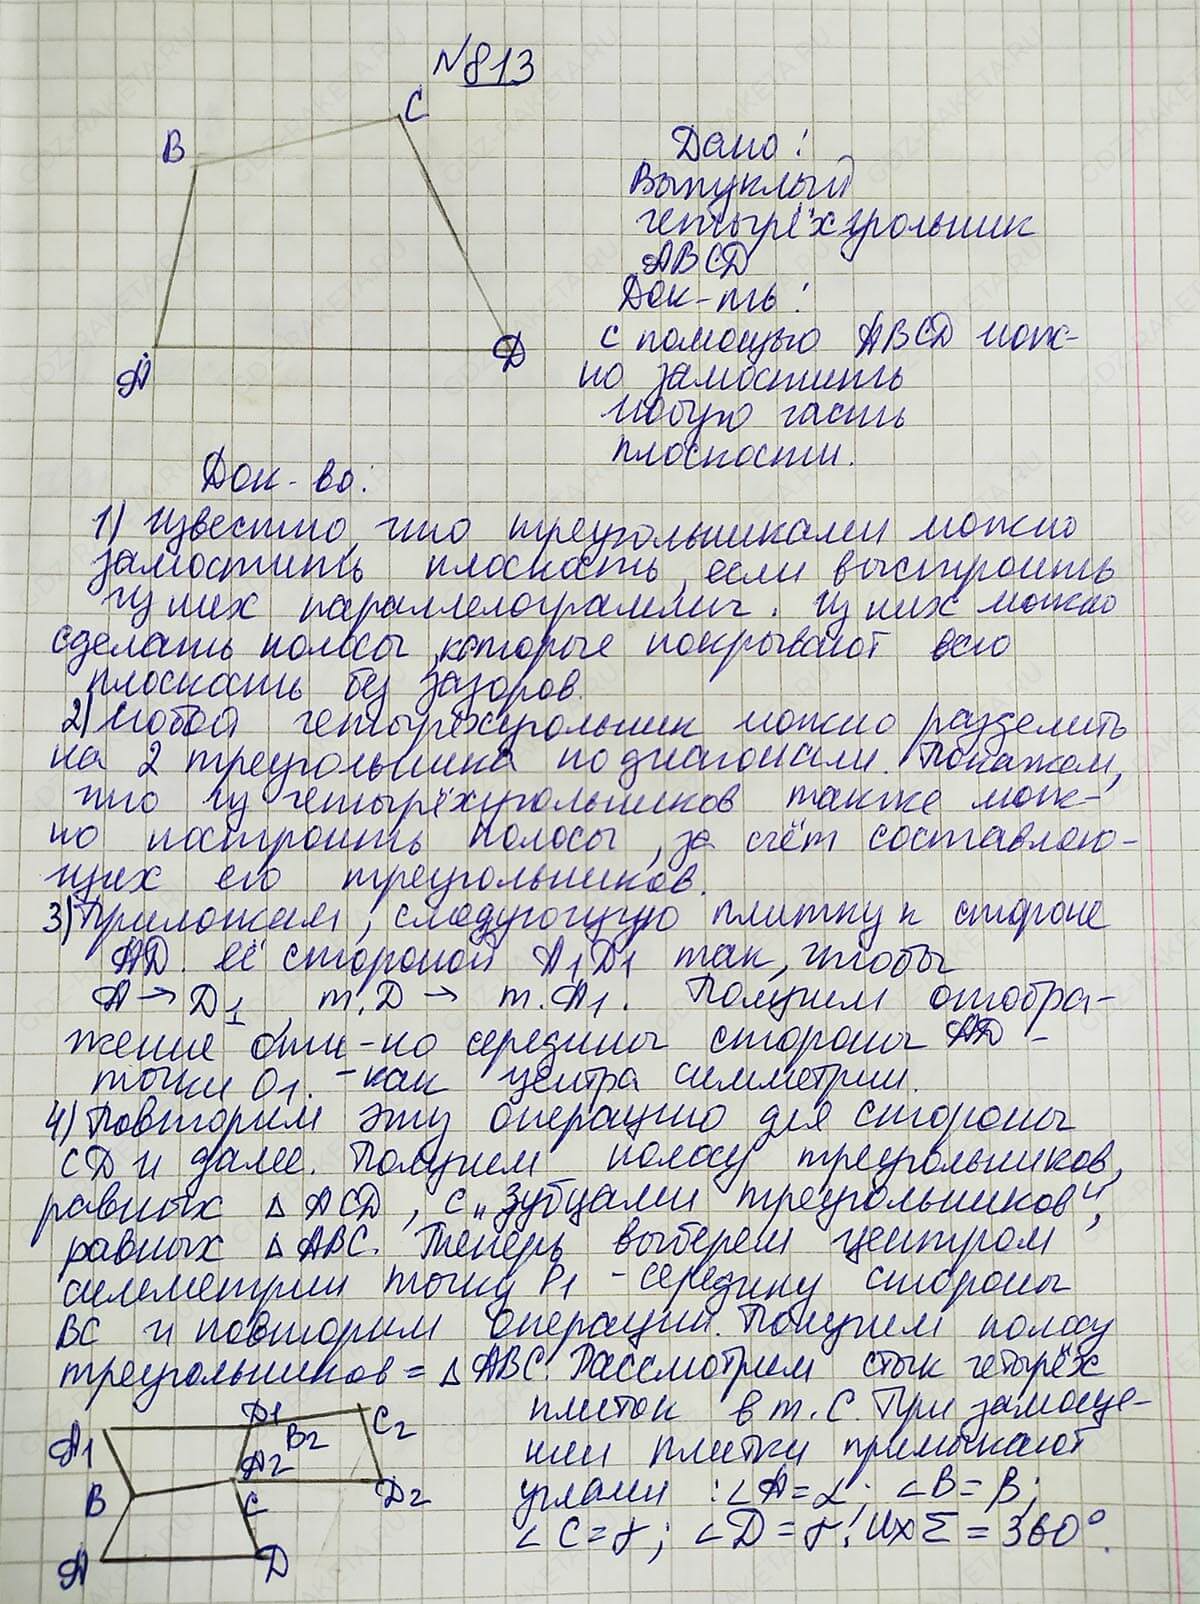 №813
C
B
A
D
Дано:
Выпуклый
четырёхугольник
ABCD
Док-ть:
с помощью ABCD мож-
но замостить
любую часть
плоскости.
Док-во:
1) Известно, что треугольниками можно
замостить плоскость, если выстроить
из них параллелограммы. Из них можно
сделать полосы, которые покрывают всю
плоскость без зазоров.
2) Любой четырёхугольник можно разделить
на 2 треугольника по диагонали. Покажем,
что из четырёхугольников также мож-
но построить полосы, за счёт составляю-
щих его треугольников.
3) Приложам, следующую плитку к стороне
AD. её стороной A1D1 так, чтобы
A → D1, т.D → т.A1. Получим отобра-
жение отн-но середины стороны AD -
точки O1. - как центра симметрии.
4) Повторим эту операцию для стороны
CD и далее. Получим полосу треугольников,
равных △ ACD, с „зубцами треугольников",
равных △ ABC. Теперь выберем центром
симметрии точку P1 - середину стороны
BC и повторим операции. Получим полосу
треугольников = △ ABC. Рассмотрим стык четырёх
плиток в т. C. При замоще-
нии плитки примыкают
углами: ∠A=α; ∠B=β;
∠C=γ; ∠D=γ! Их Σ = 360°.
A1
D1
B2
C2
A2
B
C
D2
A
D